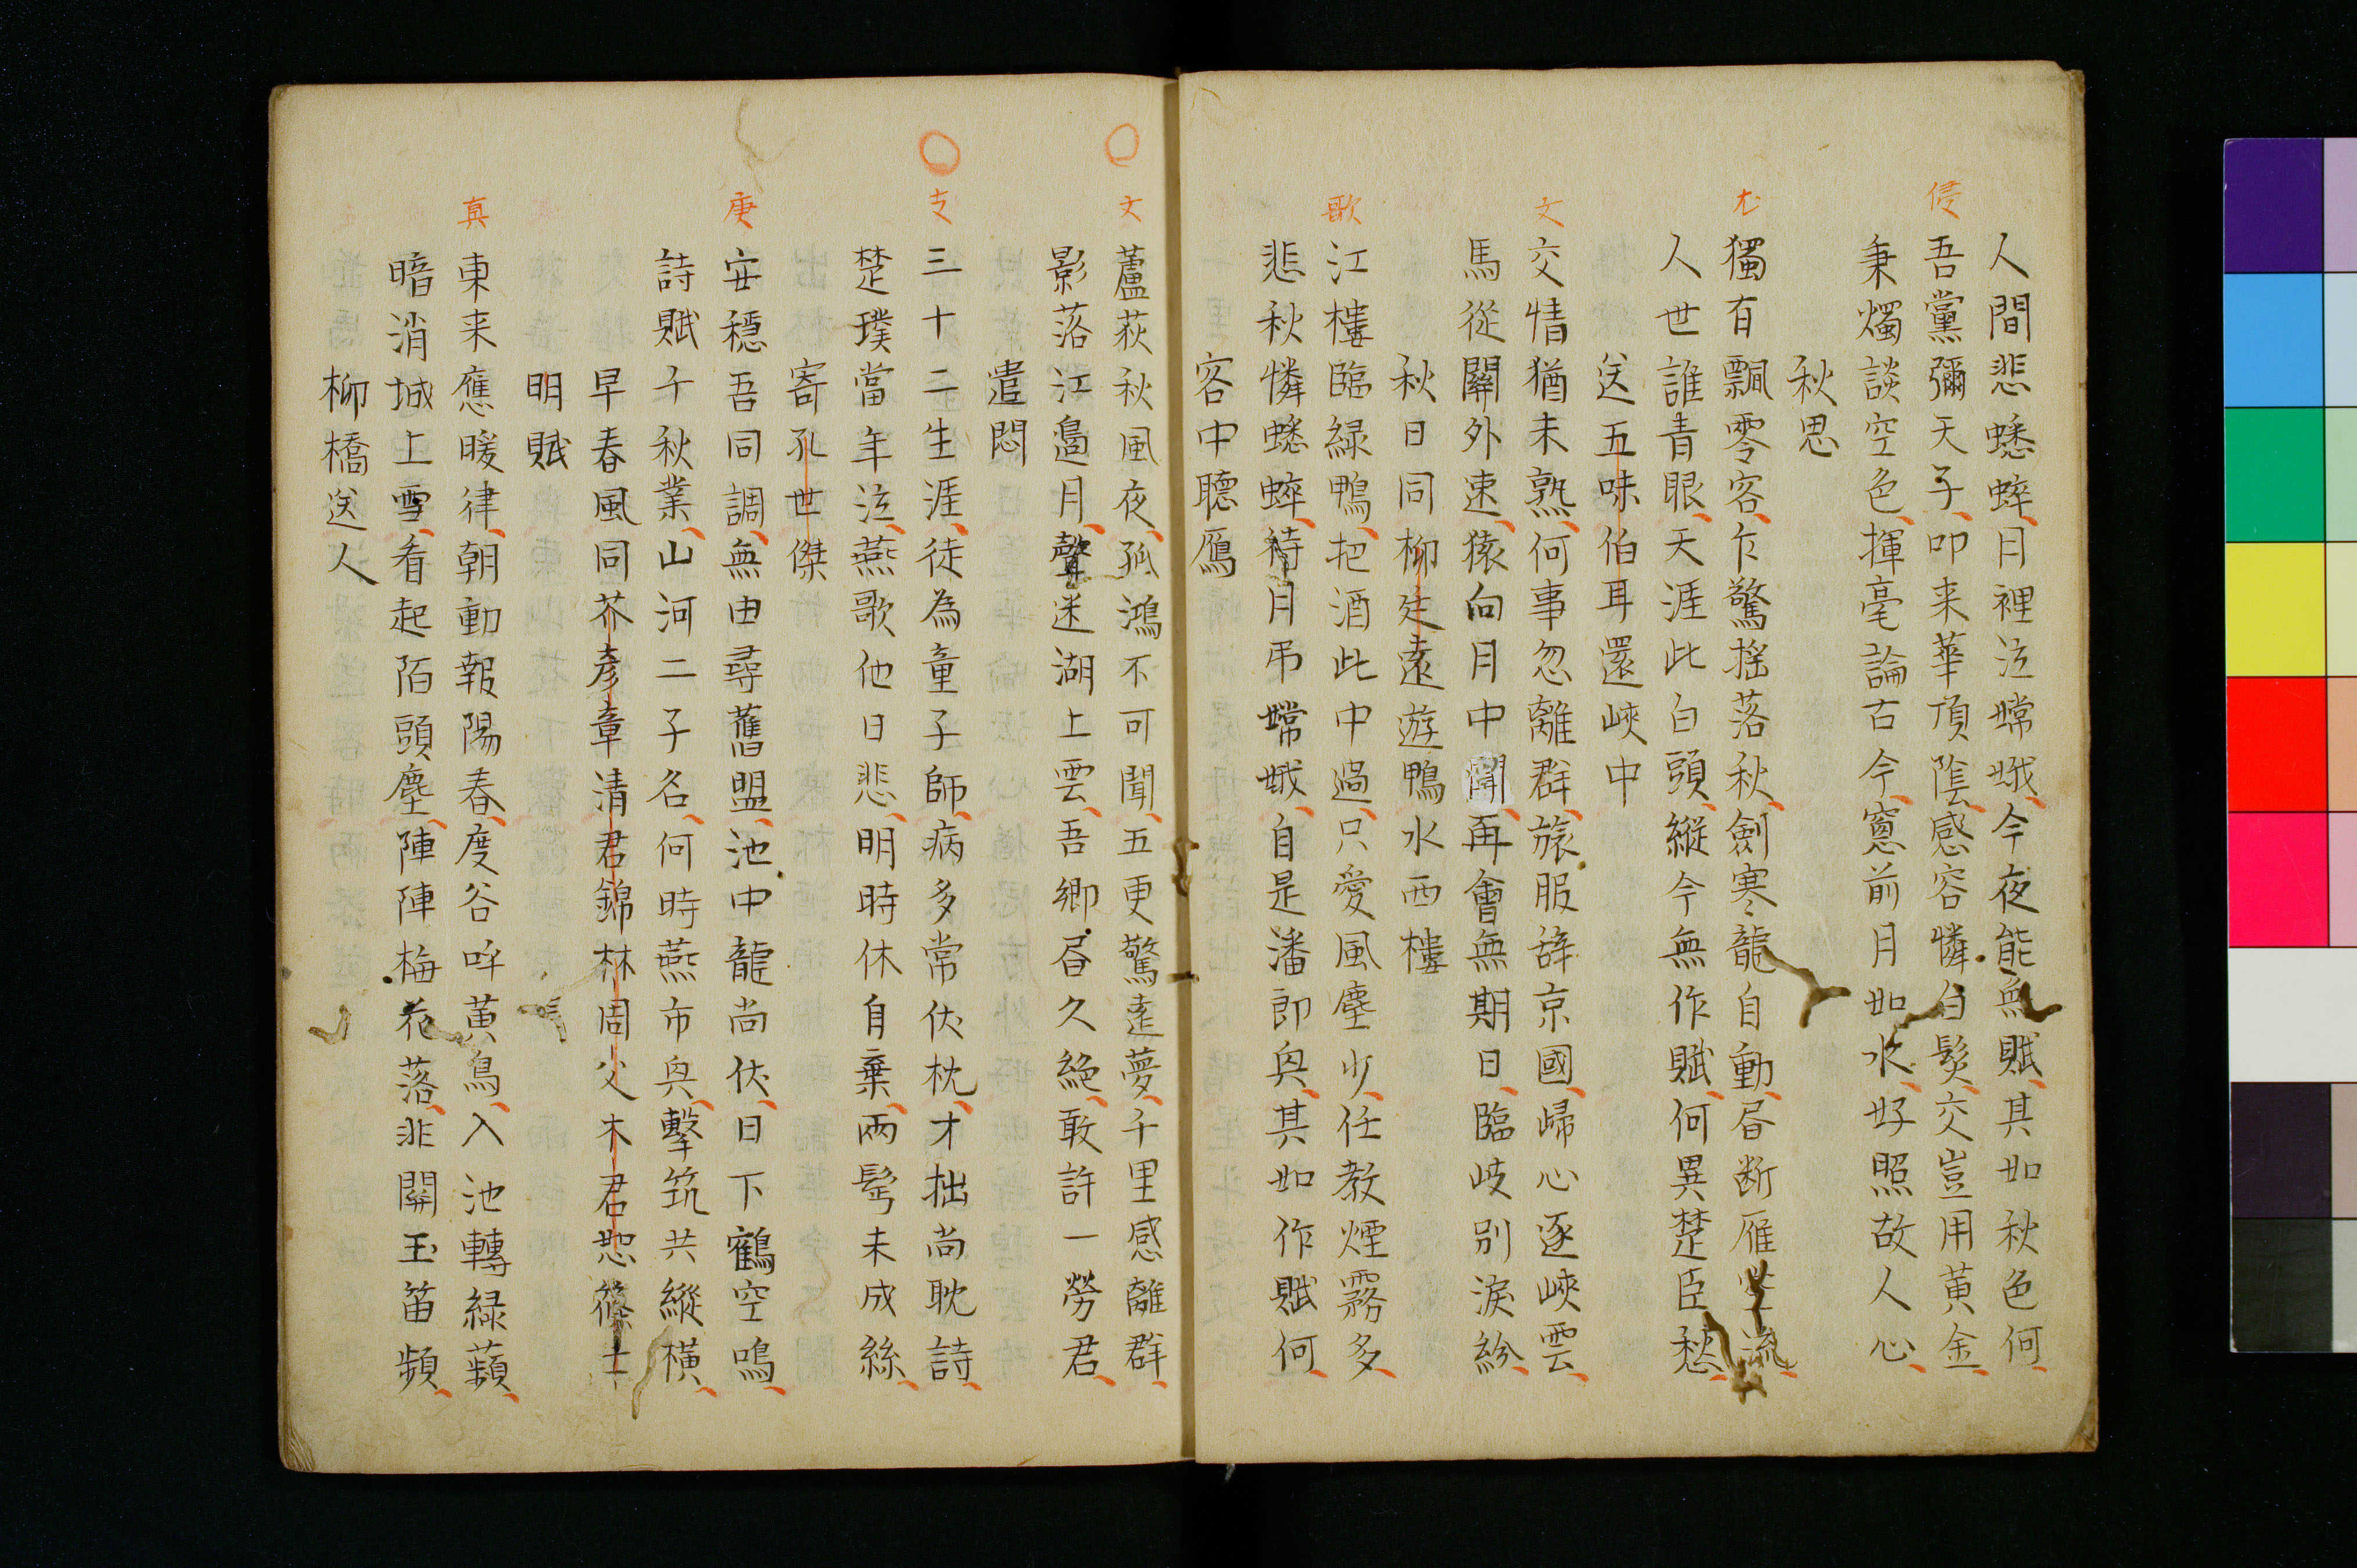 人間悲蟋蟀月裡泣嫦娥今夜能無賦其如秋色何
侵
吾黨彌天子叩来華頂陰感容憐白髮交豈用黄金
秉燭談空色揮毫論古今窓前月如水好照故人心
秋思
尤
獨有飄零客乍驚揺落秋劍寒龍自動昼断雁空流
人世誰青眼天涯此白頭縦今無作賦何異楚臣愁
送五味伯耳還峽中
文
交情猶未熟何事忽離群旅服辞京國歸心逐峽雲
馬從關外速猿向月中聞再會無期日臨岐別涙紛
秋日同柳廷遠遊鴨水西樓
歌
江樓臨緑鴨把酒此中過只愛風塵少任教煙霧多
悲秋憐蟋蟀待月弔嫦娥自是潘郎興其如作賦何
客中聽鴈
文
蘆荻秋風夜孤鴻不可聞五更驚遠夢千里感離群
影落江邉月聲迷湖上雲吾郷昼久絶敢許一勞君
遣悶
支
三十二生涯徒為童子師病多常伏枕才拙尚耽詩
楚璞當年泣燕歌他日悲明時休自棄兩髩未成絲
寄孔世傑
庚
安穏吾同調無由尋舊盟池中龍尚伏日下鶴空鳴
詩賦千秋業山河二子名何時燕市興擊筑共縦横
早春風同芥彦章清君錦林周父木君恕篠士
明賦
真
東来應暖律朝動報陽春度谷呼黄鳥入池轉緑蘋
暗消城上雪看起陌頭塵陣陣梅花落非關玉笛頻
柳橋送人